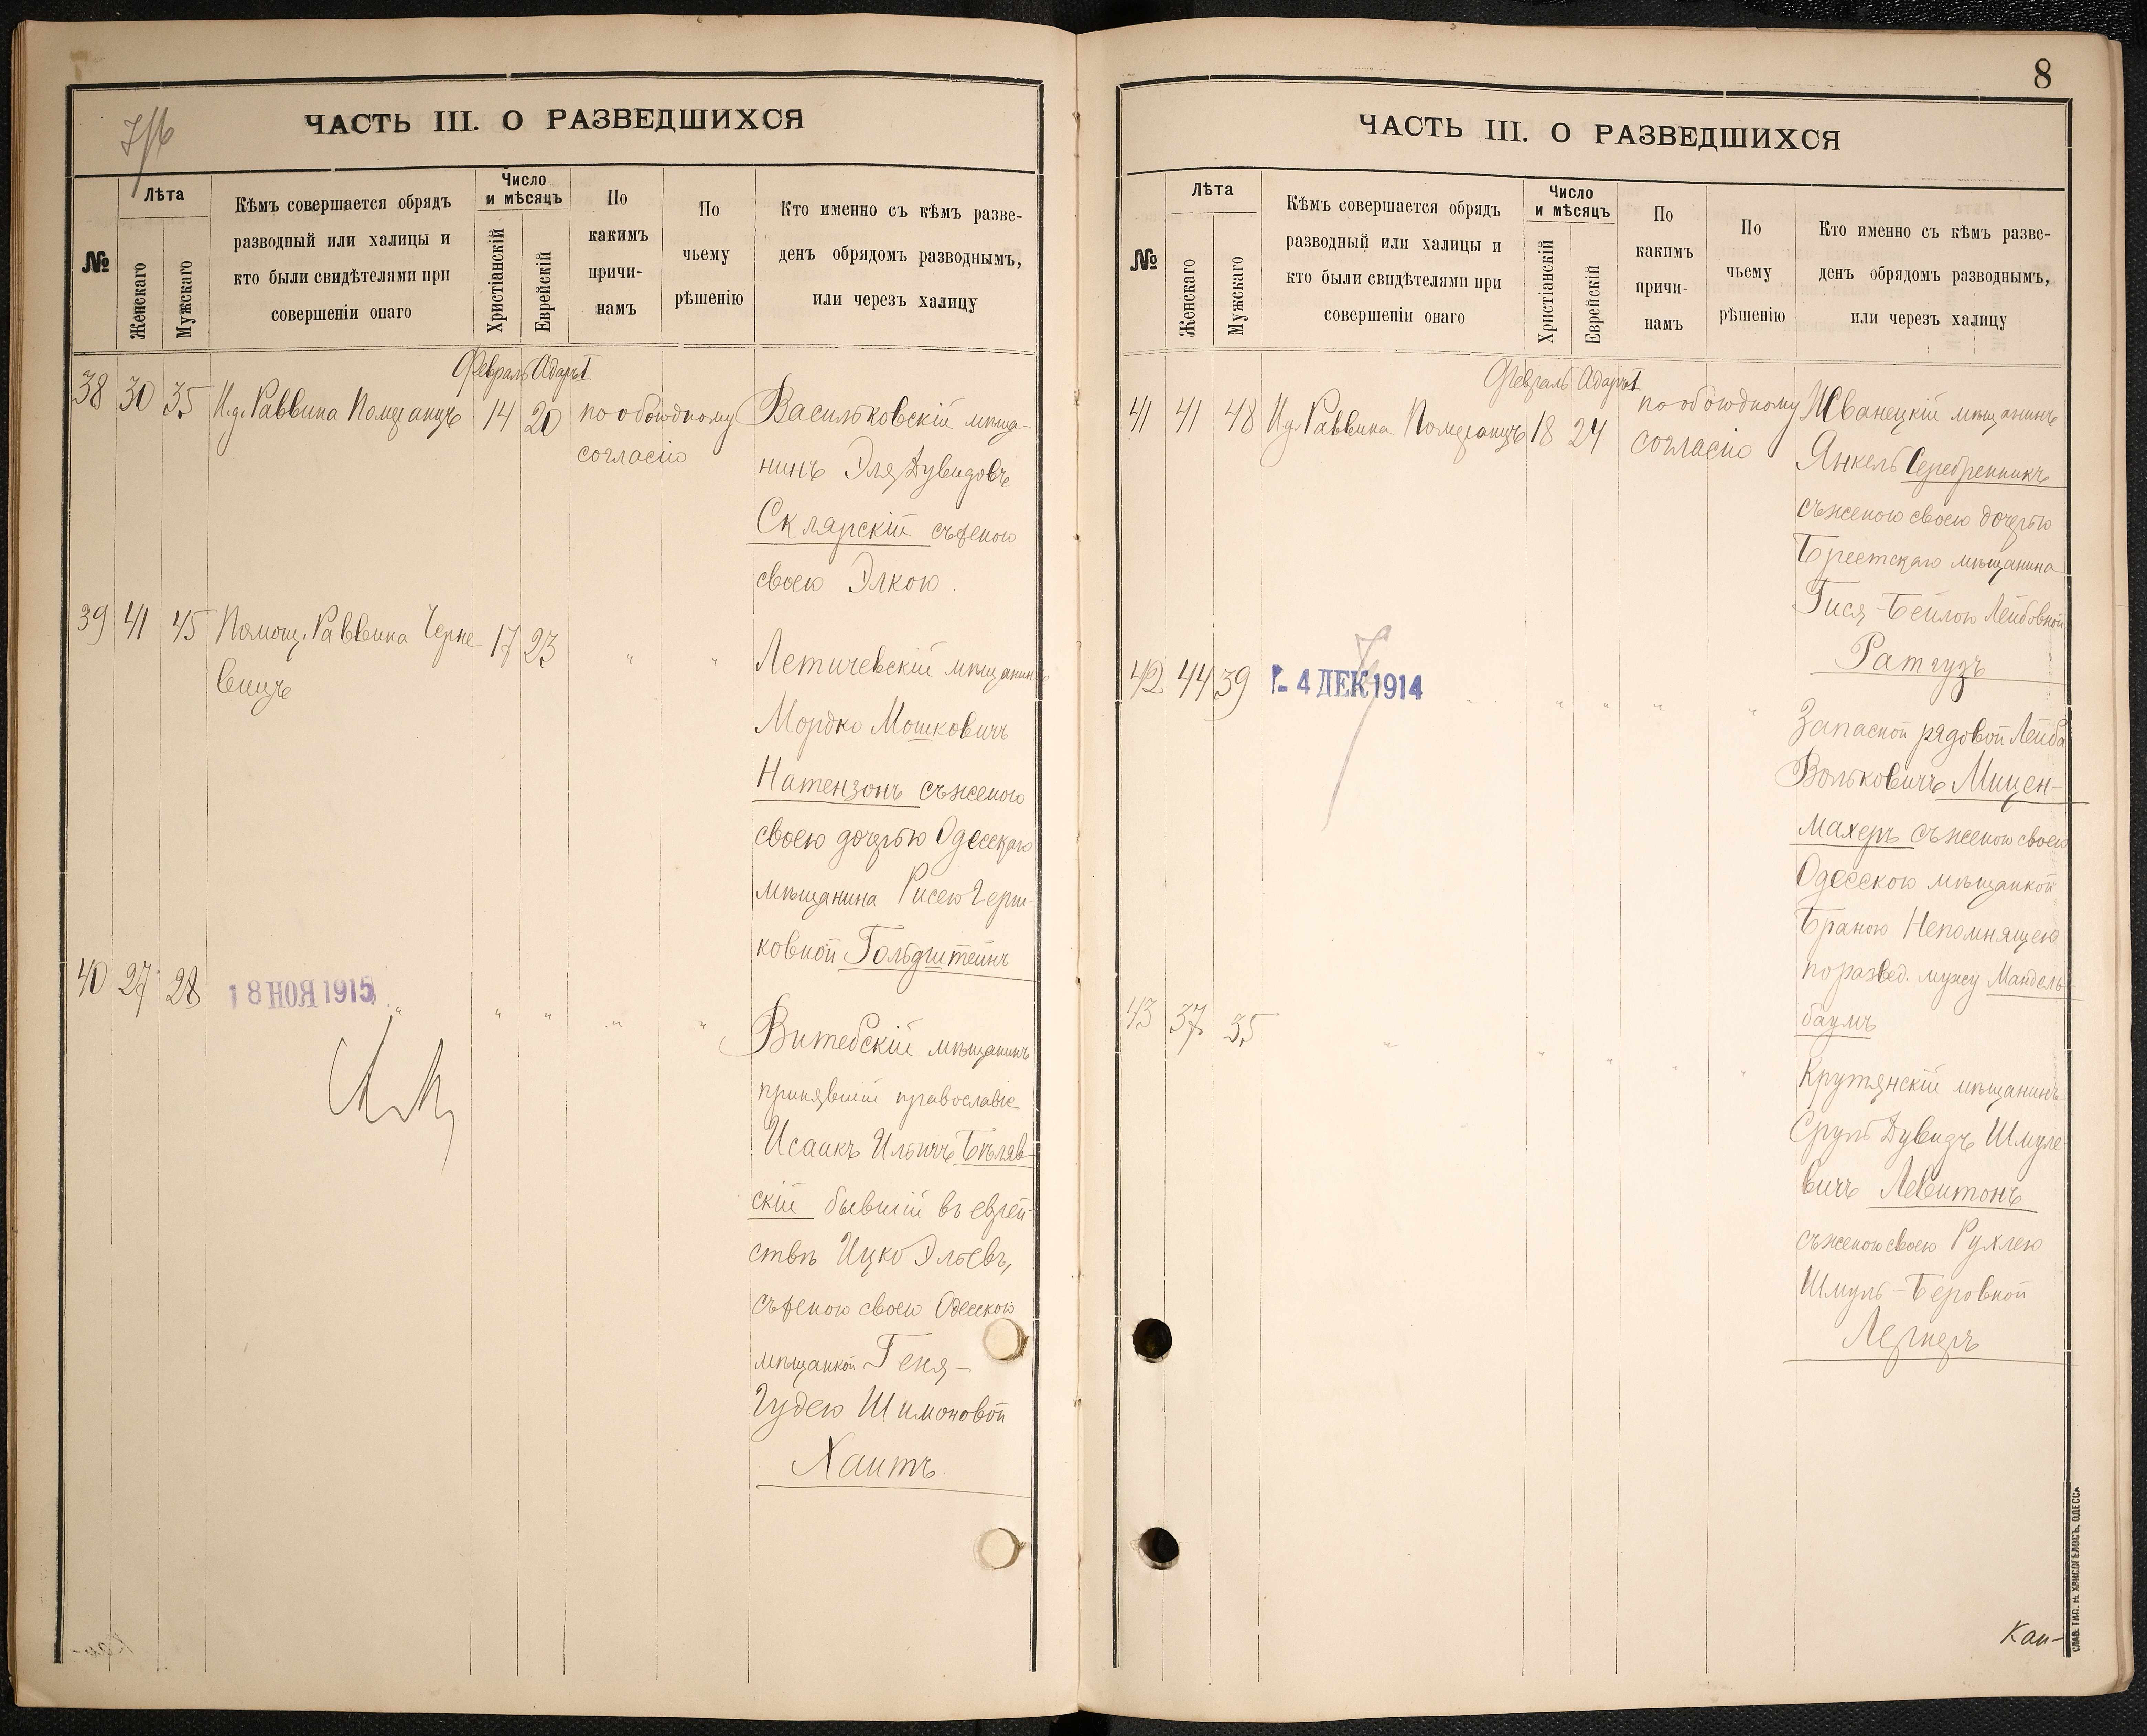 ЧАСТЬ III. О РАЗВЕДШИХСЯ
№
Лѣта
Женскаго
Мужскаго
Кѣмъ совершается обрядъ
разводный или халицы и
кто были свидѣтелями при
совершеніи онаго
Число
и мѣсяцъ
Христіанскій
Еврейскій
По
какимъ
причи-
намъ
По
чьему
рѣшенію
Кто именно съ кѣмъ разве-
денъ обрядомъ разводнымъ,
или черезъ халицу
Февраль Адаръ I
38 30 35 И.д. Раввина Померанцъ 14 20 по обоюдному
согласію
Васильковскій мѣща-
нинъ Эля Дувидовъ
Склярскій съ женою
своею Элкою.
39 41 45 Помощ. Раввина Черне
вицъ
17 23 " "
Летичевскій мѣщанинъ
Мордко Мошковичъ
Натензонъ съ женою
своею дочерью Одесскаго
мѣщанина Рисею Герш-
ковной Гольдштейнъ
40 27 28 18 НОЯ 1915 " " " " "
Витебскій мѣщанинъ
принявшій православіе
Исаакъ Ильичъ Бѣляв-
скій бывшій въ еврей-
ствѣ Ицко Эльевъ,
съ женою своею Одесскою
мѣщанкой Геня-
Гудею Шимоновой
Хаитъ
8
ЧАСТЬ III. О РАЗВЕДШИХСЯ
№
Лѣта
Женскаго
Мужскаго
Кѣмъ совершается обрядъ
разводный или халицы и
кто были свидѣтелями при
совершеніи онаго
Число
и мѣсяцъ
Христіанскій
Еврейскій
По
какимъ
причи-
намъ
По
чьему
рѣшенію
Кто именно съ кѣмъ разве-
денъ обрядомъ разводнымъ,
или черезъ халицу
Февраль Адаръ I
41 41 48 И.д. Раввина Померанцъ 18 24 по обоюдному
согласію
Жванецкій мѣщанинъ
Янкель Серебренникъ
съ женою своею дочерью
Брестскаго мѣщанина
Гися-Бейлою Лейбовной
Ратгузъ
42 44 39 - 4 ДЕК 1914 " " " " "
Запасной рядовой Лейба
Вольковичъ Мицен-
махеръ съ женою своею
Одесскою мѣщанкой
Браною Непомнящею
по развед. мужу Мандель-
баумъ
43 37 35 " " " " "
Крутянскій мѣщанинъ
Сруль Дувидъ Шмуле
вичъ Левитонъ
съ женою своею Рухлею
Шмуль-Беровной
Лернеръ
Кан-
СЛАВ. ТИП. Н. ХРИСОГЕЛОСЪ, ОДЕССА